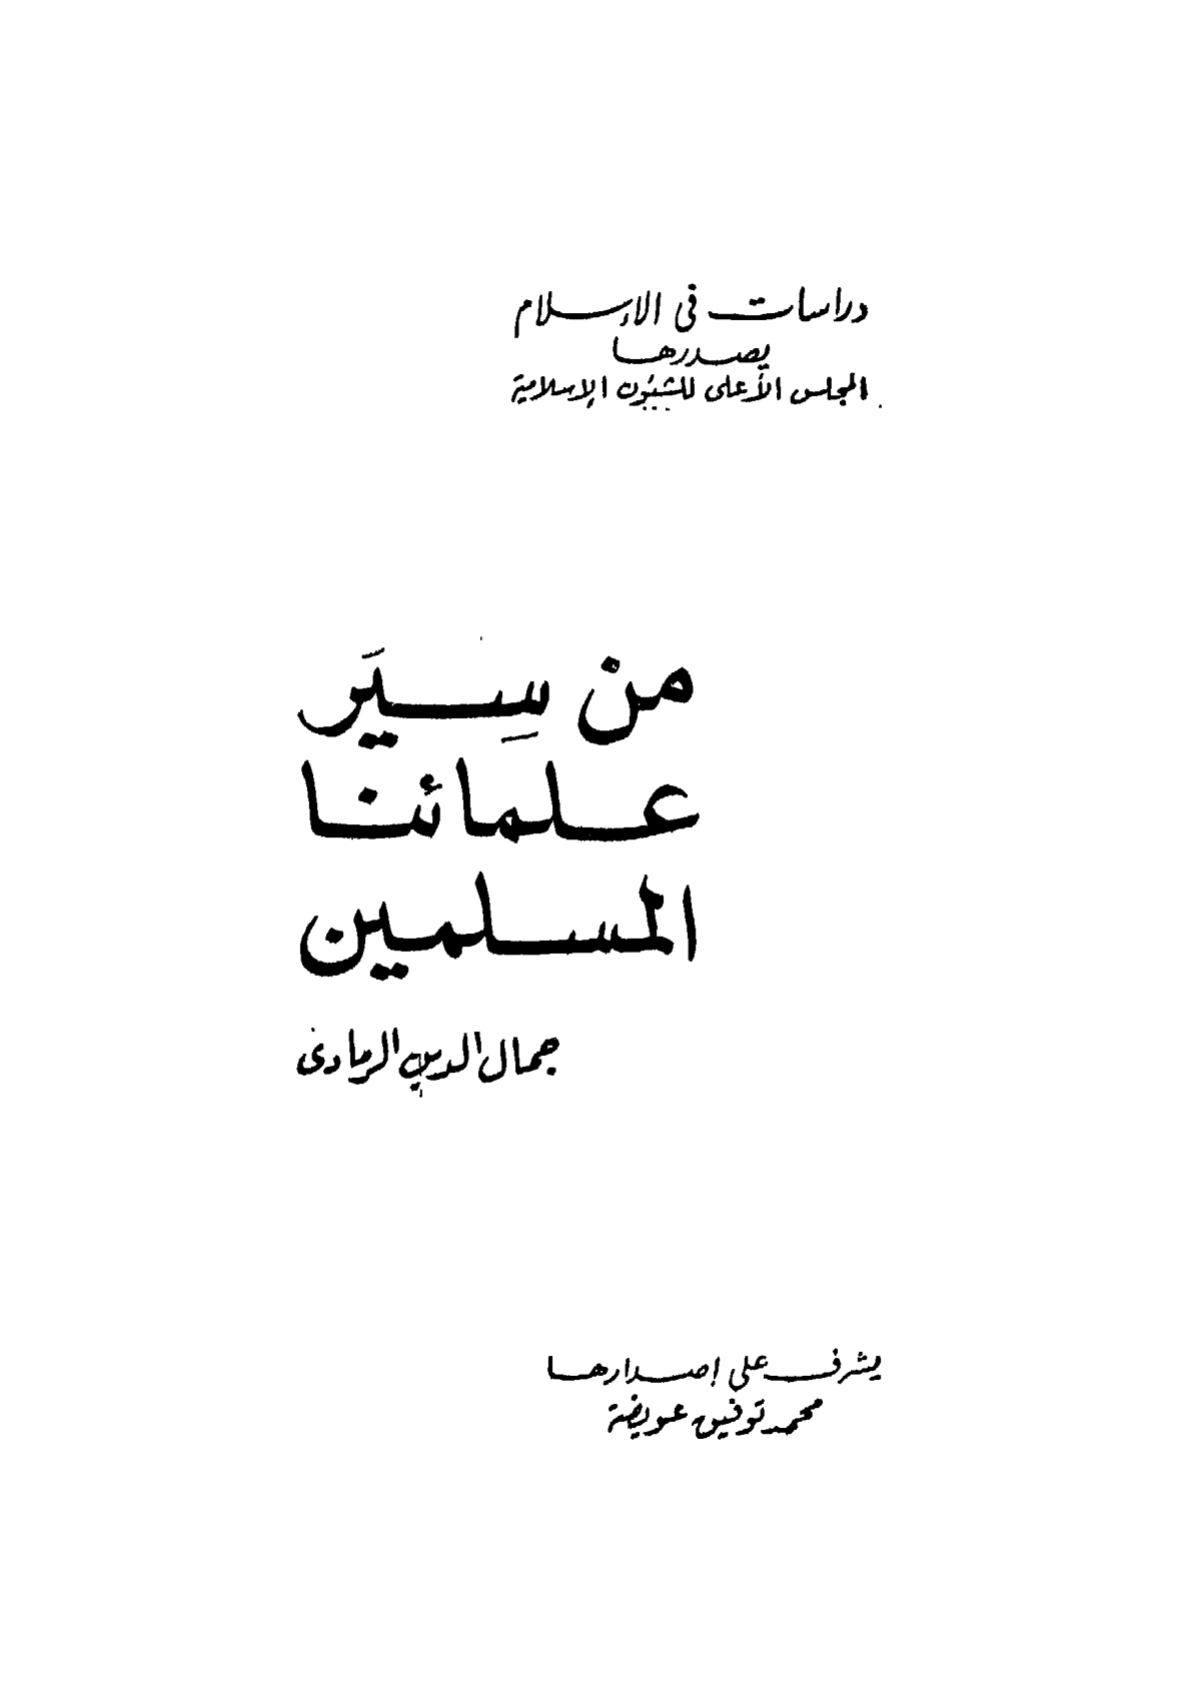 دراسات فى الإسلام
يصدرها
المجلس الأعلى للشئون الإسلامية
من سِيَر
علمائنا
المسلمين
جمال الدين الرمادى
يشرف على إصدارها
محمد توفيق عويضة